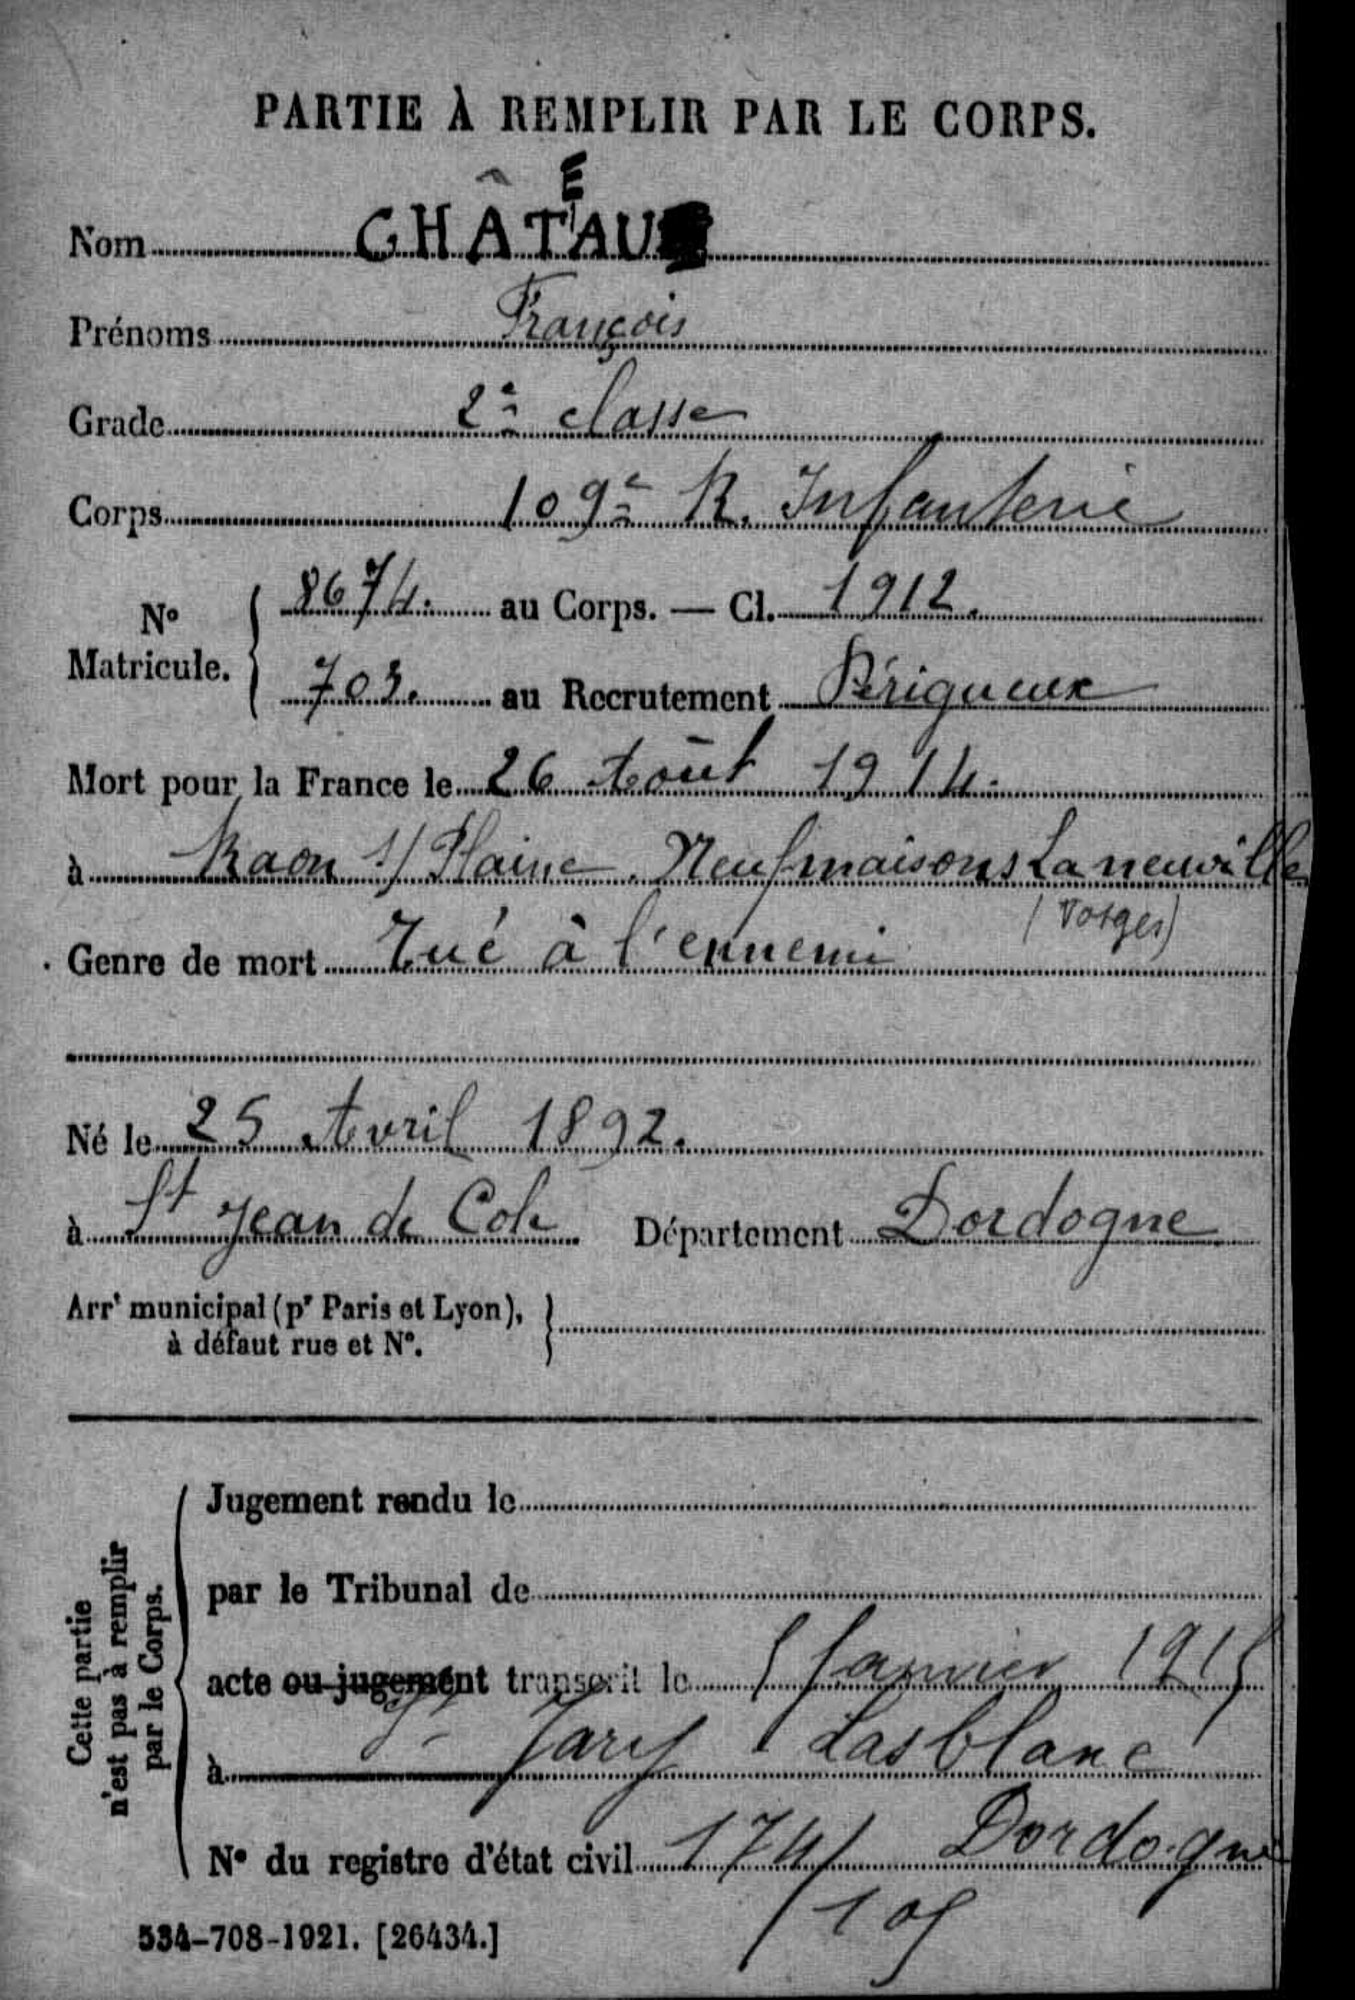 PARTIE À REMPLIR PAR LE CORPS.
Nom CHÂTEAU
Prénoms François
Grade 2e classe
Corps 109e R. Infanterie
No Matricule. 8674. au Corps. — Cl. 1912.
703. au Recrutement Périgueux
Mort pour la France le 26 Août 1914.
à Raon s/ Plaine. Neufmaisons Laneuville
(Vosges)
Genre de mort Tué à l'ennemi
Né le 25 Avril 1892.
à St Jean de Cole Département Dordogne
Arrt municipal (pr Paris et Lyon),
à défaut rue et No.
Cette partie
n'est pas à remplir
par le Corps.
Jugement rendu le
par le Tribunal de
acte ou jugement transcrit le 5 Janvier 1915
à St Jary Lasblanc
No du registre d'état civil 174/ Dordogne
/105
534-708-1921. [26434.]